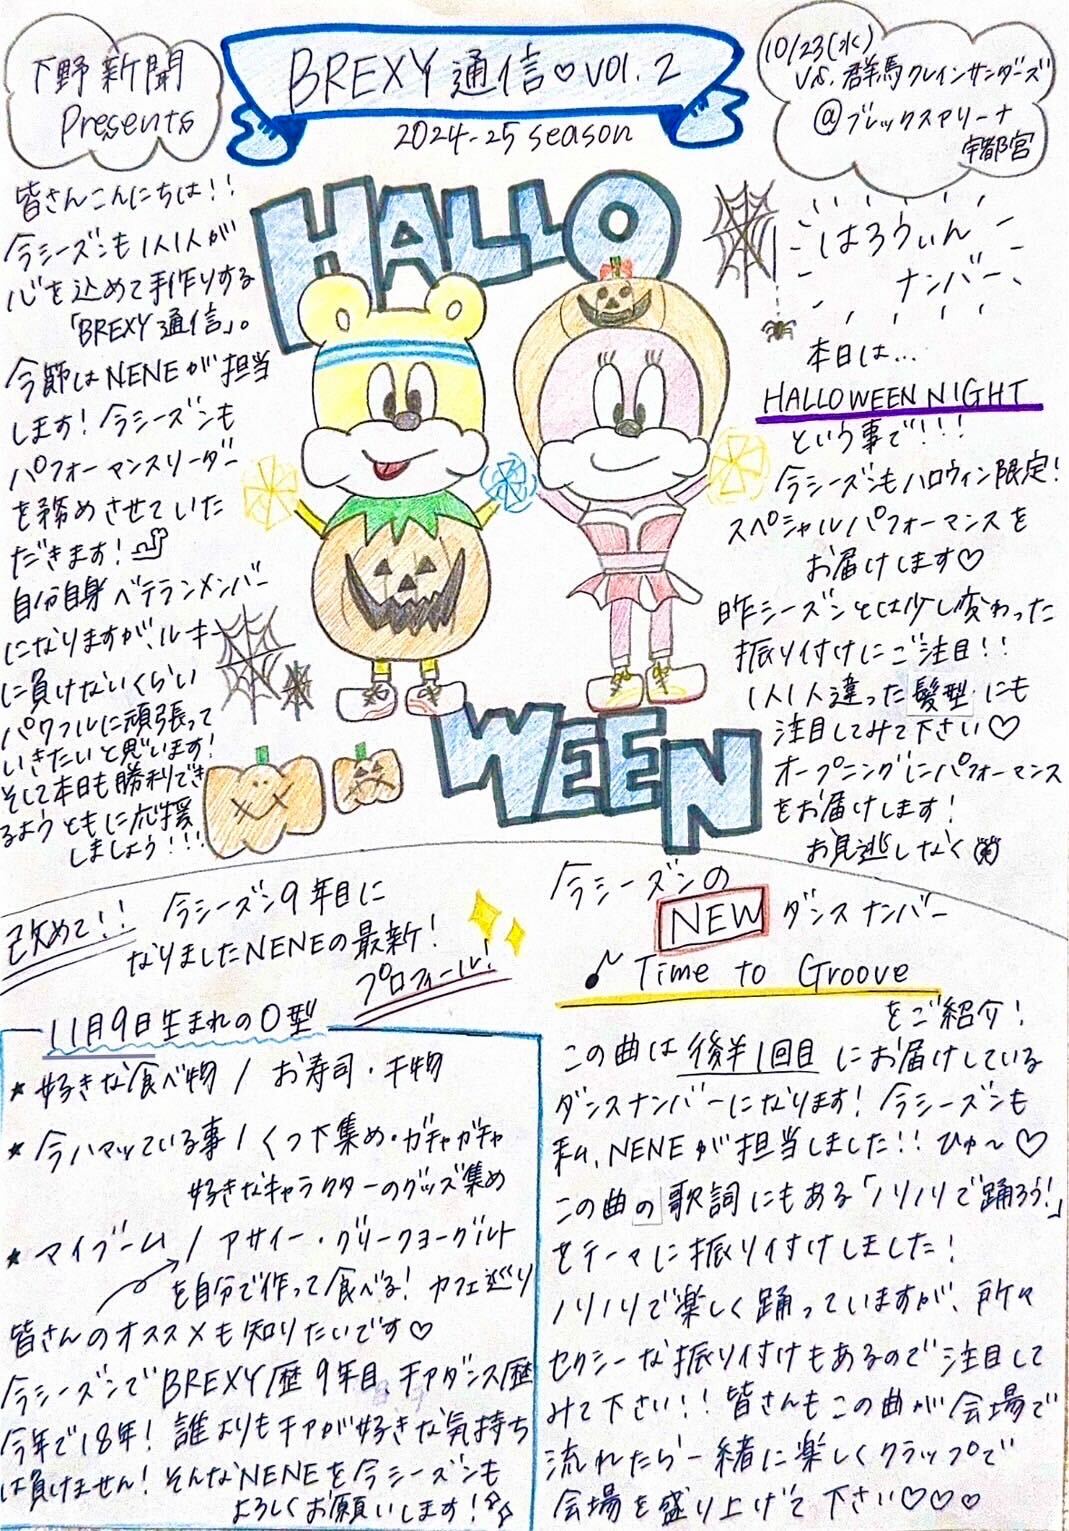 下野新聞
Presents
BREXY通信♡VOL.2
2024-25 season
10/23(水)
VS.群馬クレインサンダーズ
@ブレックスアリーナ
宇都宮
HALLO
WEEN
皆さんこんにちは!!
今シーズンも1人1人が
心を込めて手作りする
「BREXY通信」。
今節はNENEが担当
します!今シーズンも
パフォーマンスリーダー
を務めさせていた
だきます!
自分自身ベテランメンバー
になりますが、ルーキー
に負けないくらい
パワフルに頑張って
いきたいと思います!
そして本日も勝利でき
るようともに応援
しましょう!!!
はろうぃん
ナンバー
本日は...
HALLOWEEN NIGHT
という事で!!!
今シーズンもハロウィン限定!
スペシャルパフォーマンスを
お届けします♡
昨シーズンとは少し変わった
振り付けにご注目!!
1人1人違った髪型にも
注目してみて下さい♡
オープニングにパフォーマンス
をお届けします!
お見逃しなく
改めて!!
今シーズン9年目に
なりましたNENEの最新!
プロフィール!
11月9日生まれのO型
★好きな食べ物/お寿司・干物
★今ハマッている事/くつ下集め・ガチャガチャ
好きなキャラクターのグッズ集め
★マイブーム/アサイー・グリークヨーグルト
を自分で作って食べる!カフェ巡り
皆さんのオススメも知りたいです♡
今シーズンでBREXY歴9年目 チアダンス歴
今年で18年!誰よりもチアが好きな気持ち
は負けません!そんなNENEを今シーズンも
よろしくお願いします!
今シーズンの
NEW ダンスナンバー
♪Time to Groove
をご紹介!
この曲は後半1回目にお届けしている
ダンスナンバーになります!今シーズンも
私、NENEが担当しました!!ひゅ〜♡
この曲の歌詞にもある「ノリノリで踊ろう!」
をテーマに振り付けしました!
ノリノリで楽しく踊っていますが、所々
セクシーな振り付けもあるので注目して
みて下さい!!皆さんもこの曲が会場で
流れたら一緒に楽しくクラップで
会場を盛り上げて下さい♡♡♡